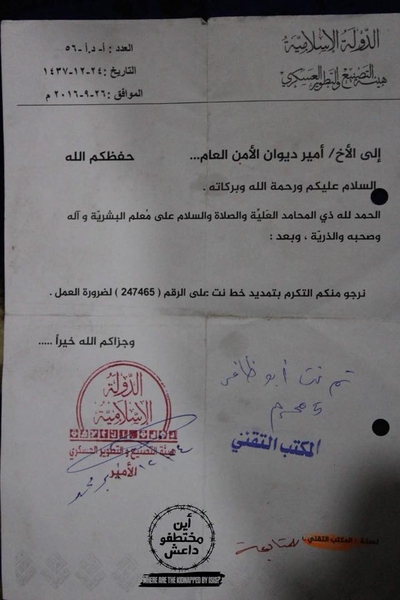 الدولة الإسلامية
هيئة التصنيع والتطوير العسكري
العدد : أ-د.أ-٥٦
التاريخ : ٢٤-١٢-١٤٣٧
الموافق : ٢٦-٩-٢٠١٦ م
إلى الأخ/ أمير ديوان الأمن العام... حفظكم الله
السلام عليكم ورحمة الله وبركاته .
الحمد لله ذي المحامد العَليّة والصلاة والسلام على مُعلم البشريّة و آله
وصحبه والذريّة ، وبعد :
نرجو منكم التكرم بتمديد خط نت على الرقم ( 247465 ) لضرورة العمل .
وجزاكم الله خيراً .....
الدولة
الإسلامية
هيئة التصنيع والتطوير العسكري
الأمير
تم نت أبو ظافر
محرم
المكتب التقني
نسخة : المكتب التقني
للمتابعة
أين
مختطفو
داعش
WHERE ARE THE KIDNAPPED BY ISIS?